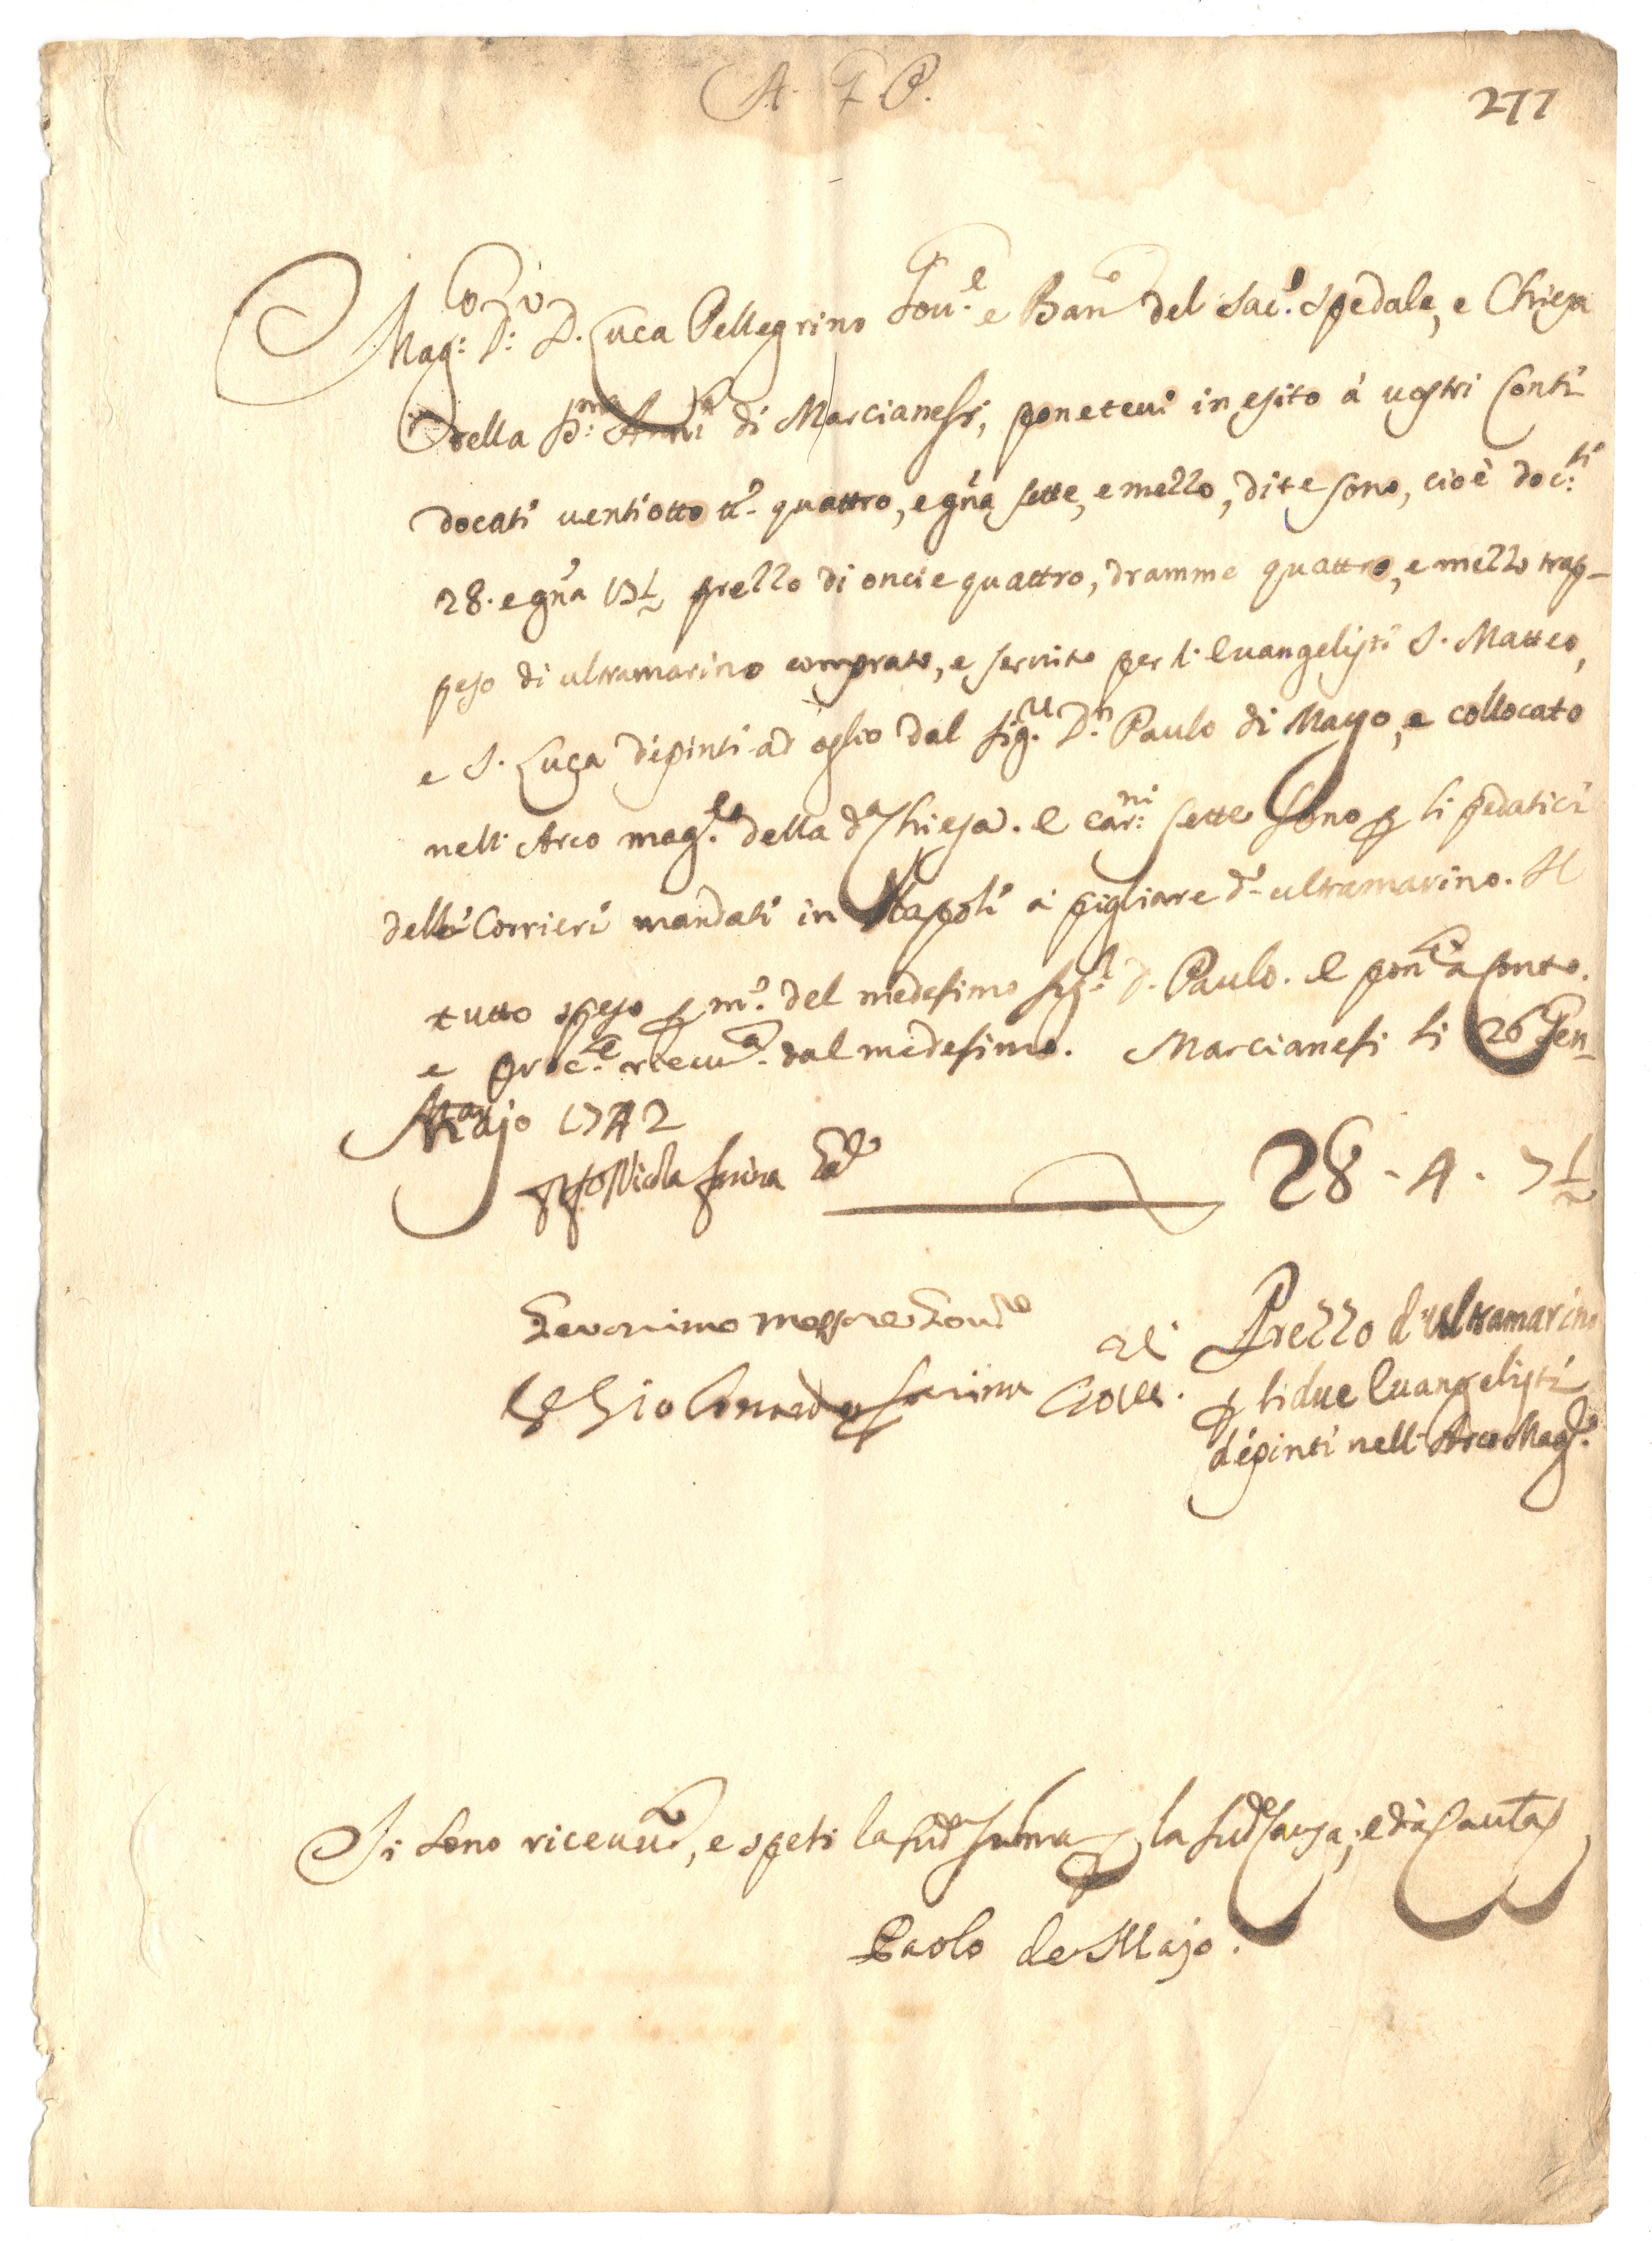 A. G P.
277
Mag:co D:r D. Luca Pellegrino Gov:e e Ban:re del Sac:o Spedale, e Chiesa
della SS:ma Ann:ta di Marcianesi, ponetevi in esito à vostri Conti
docati ventiotto tt.ì quattro, e gña sette, e mezzo, dite sono, cioè doc:ti
28. e gña 87½ prezzo di oncie quattro, dramme quattro, e mezzo trap-
peso di ultramarino comprato, e servito per li Evangelisti S. Matteo,
e S. Luca dipinti ad oglio dal Sig.r D.n Paulo di Mayo, e collocato
nell'Arco mag.re della d.a Chiesa. E car:ni sette sono p li pedatici
delli Corrieri mandati in Napoli à pigliare d.o ultramarino. Il
tutto speso p m.o del medesimo Sig.r D. Paulo. E pon.te a conto.
e proc.te ricevu.a dal medesimo. Marcianesi li 26 Gen-
najo 1742
Nicola Farina
28 - 4 - 7½
Geronimo Gov.re
Farina Gov.
Prezzo d'ultramarino
p li due Evangelisti
dipinti nell'Arco Mag.re
Si sono ricevuti, e spesi la sud.a summa p la sud.a causa, ed à cautela
Paolo de Majo.